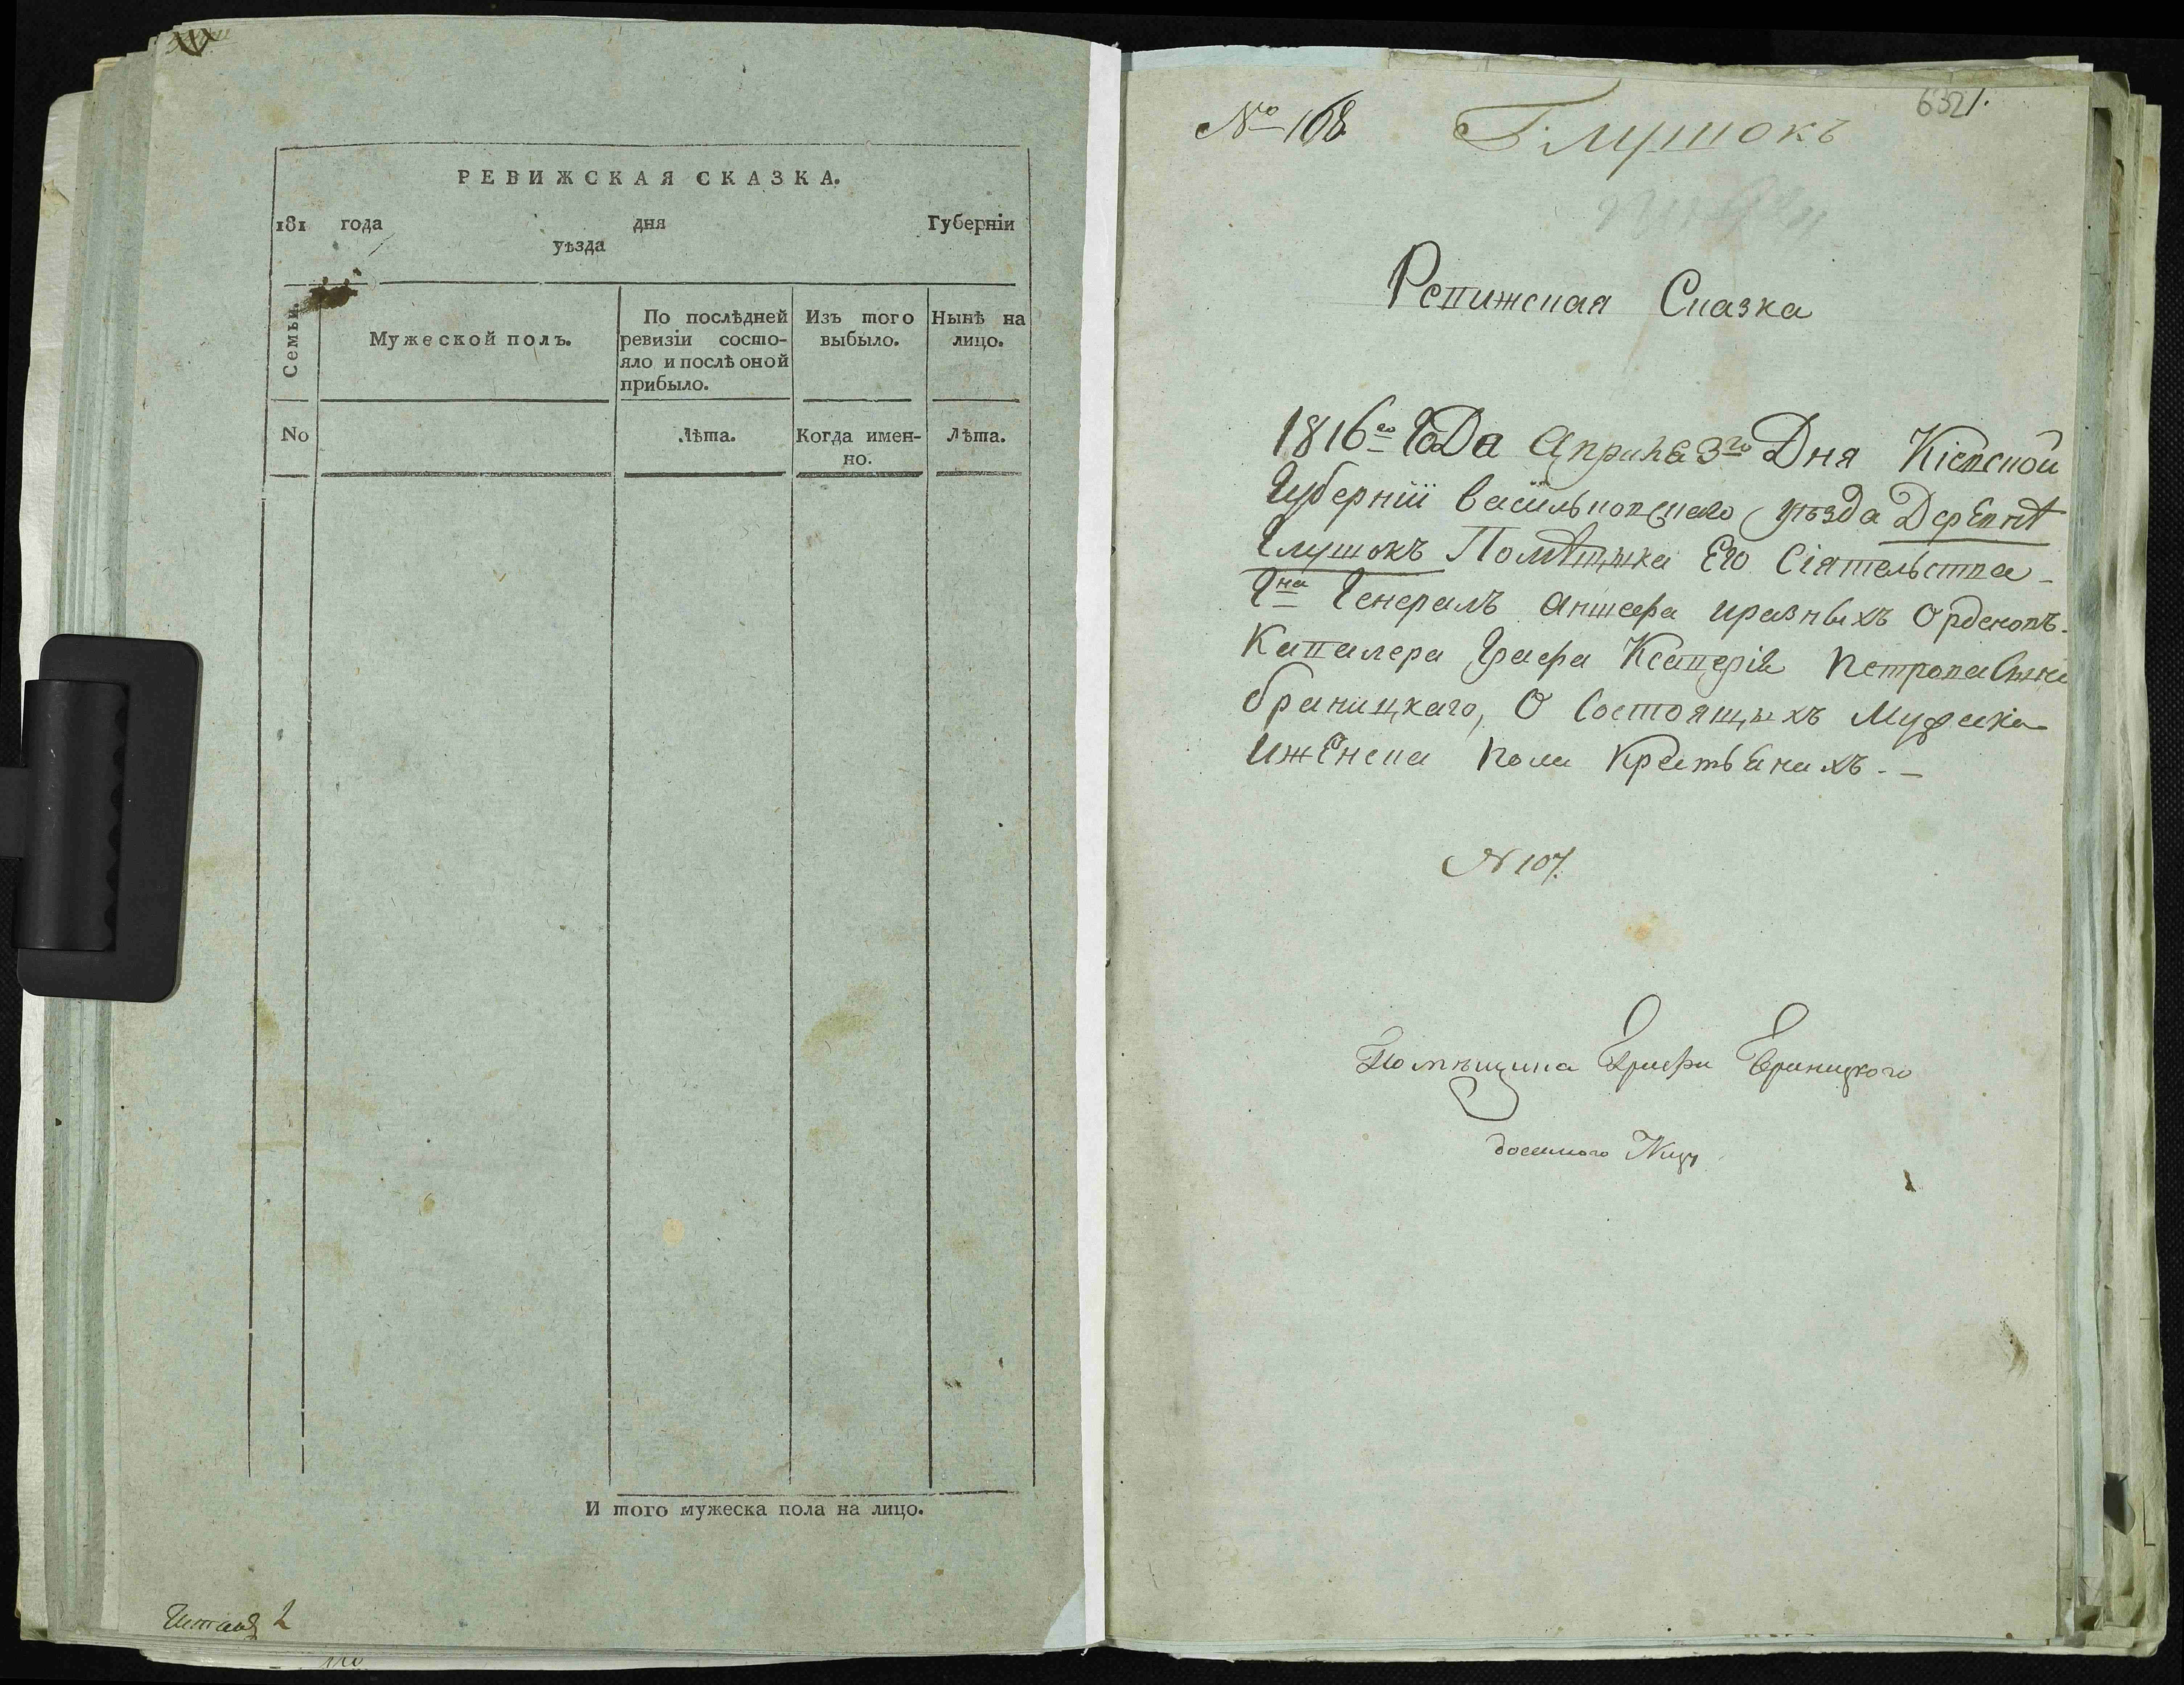 РЕВИЖСКАЯ СКАЗКА.
181 года дня Губернїи
уѣзда
Семьи.
Мужеской полъ.
По послѣдней ревизіи состо-яло и послѣ оной прибыло.
Изъ того выбыло.
Нынѣ на лицо.
No
Лѣта.
Когда имен-но.
Лѣта.
И того мужеска пола на лицо.
2
№ 168
Глушокъ
632/.
Ревижская Сказка
1816го Года Априля 3го Дня Кіевской
Губерніи Васильковскаго уѣзда Деревнѣ
Глушокъ Помѣщика Его Сіятельства
Гна Генералъ Аншефа и разныхъ Орденовъ
Кавалера Графа Ксаверія Петрова Сына
Браницкаго, О Состоящихъ Мужеска
И женска пола Крестьянахъ. -
N 107.
Помѣщика Графа Браницкого